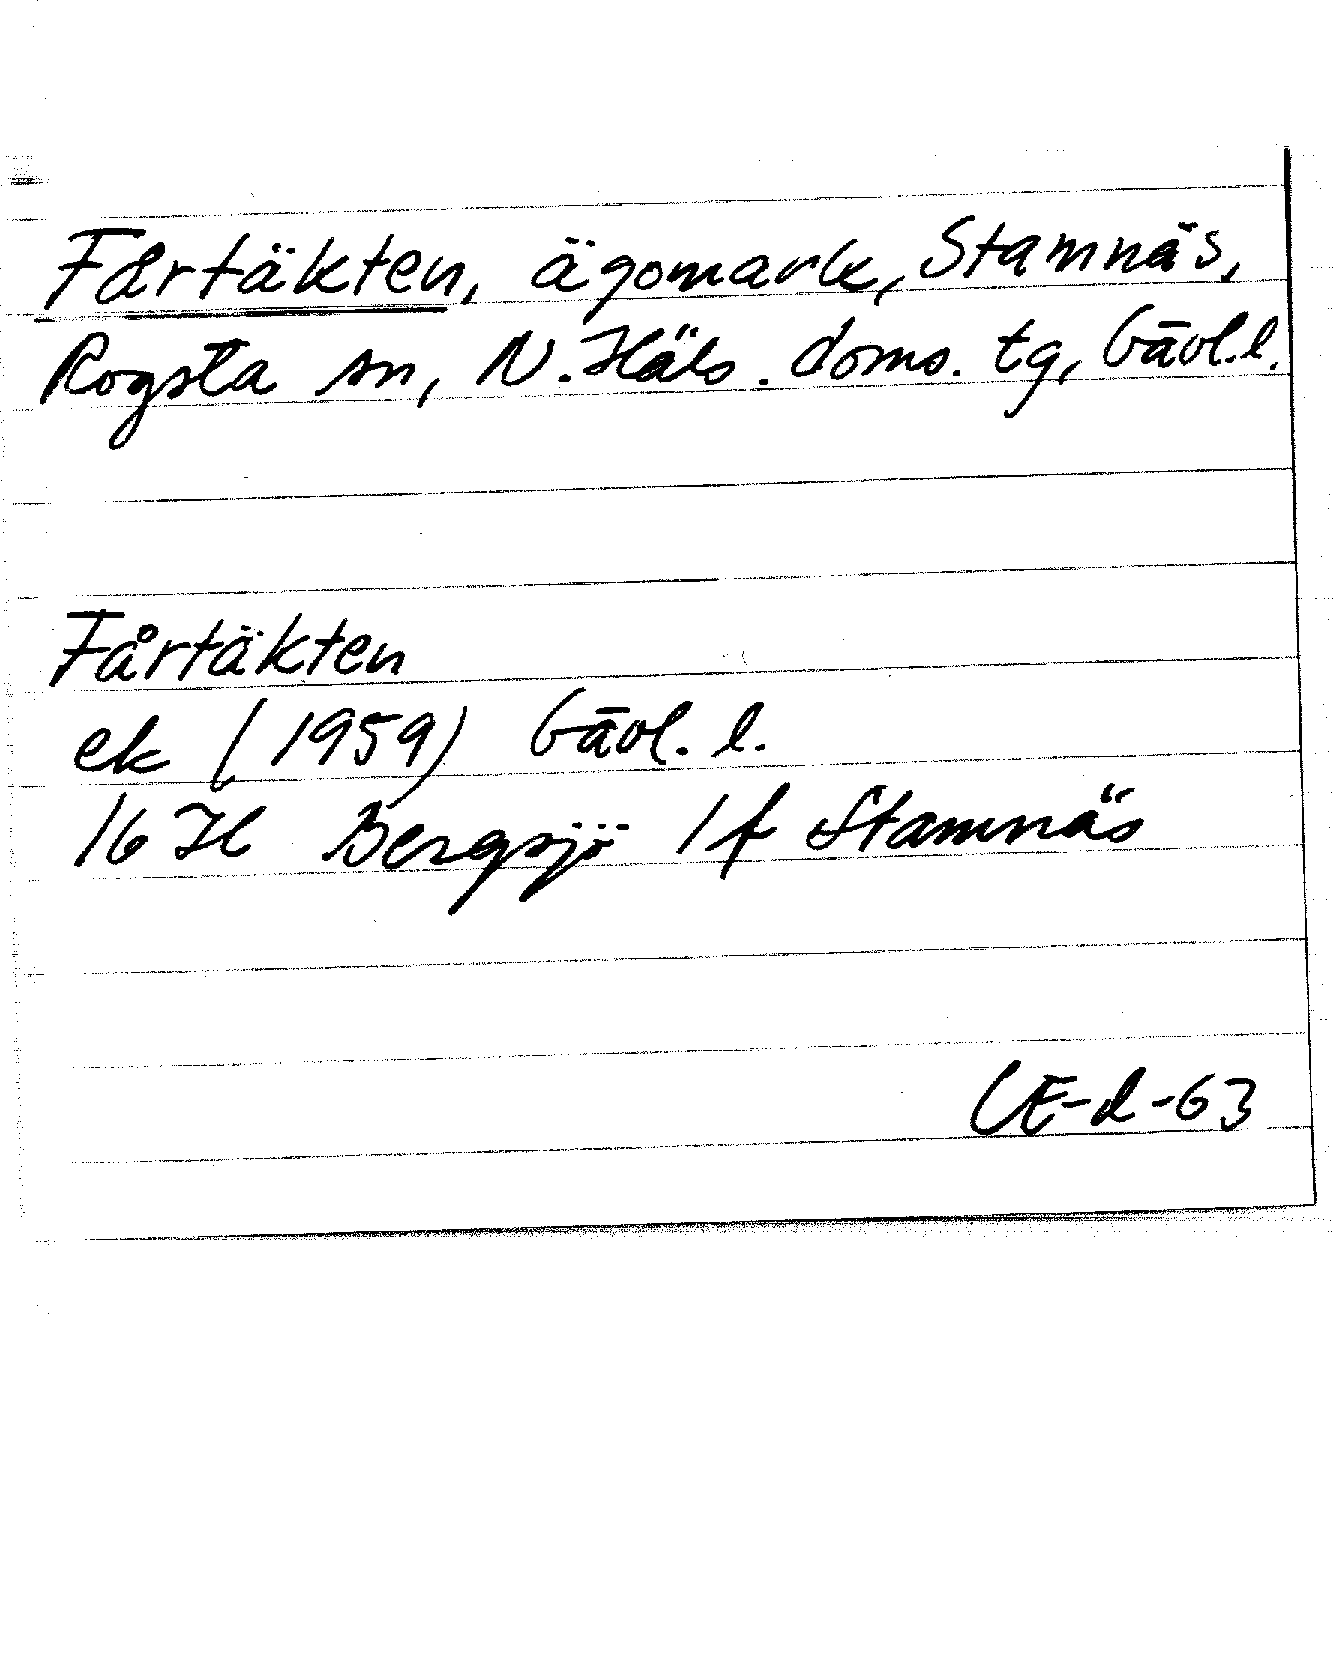 Fårtäkten, ägomark, Stamnäs,
Rogsta sn, N. Häls. doms. tg, Gävl. l.
Fårtäkten
ek (1959) Gävl. l.
16 H Bergsjö 1 f Stamnäs
CE-d-63